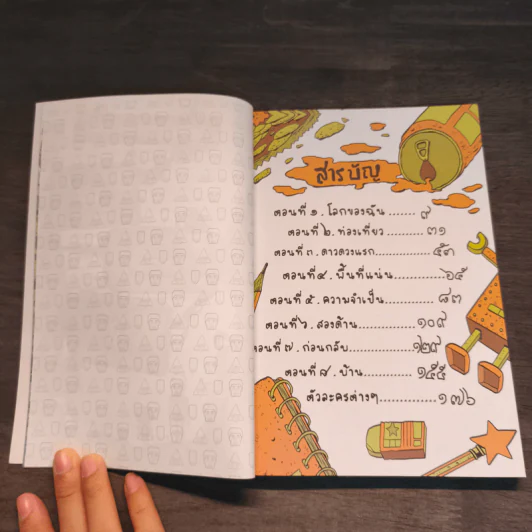 สารบัญ
ตอนที่ ๑. โลกของฉัน ........ ๙
ตอนที่ ๒. ท่องเที่ยว .......... ๓๑
ตอนที่ ๓. ดาวดวงแรก............... ๕๓
ตอนที่ ๔. พื้นที่แน่น............. ๖๕
ตอนที่ ๕. ความจำเป็น............. ๘๓
ตอนที่ ๖. สองด้าน............... ๑๐๙
ตอนที่ ๗. ก่อนกลับ.............. ๑๒๙
ตอนที่ ๘. บ้าน................ ๑๕๕
ตัวละครต่างๆ.............. ๑๗๖